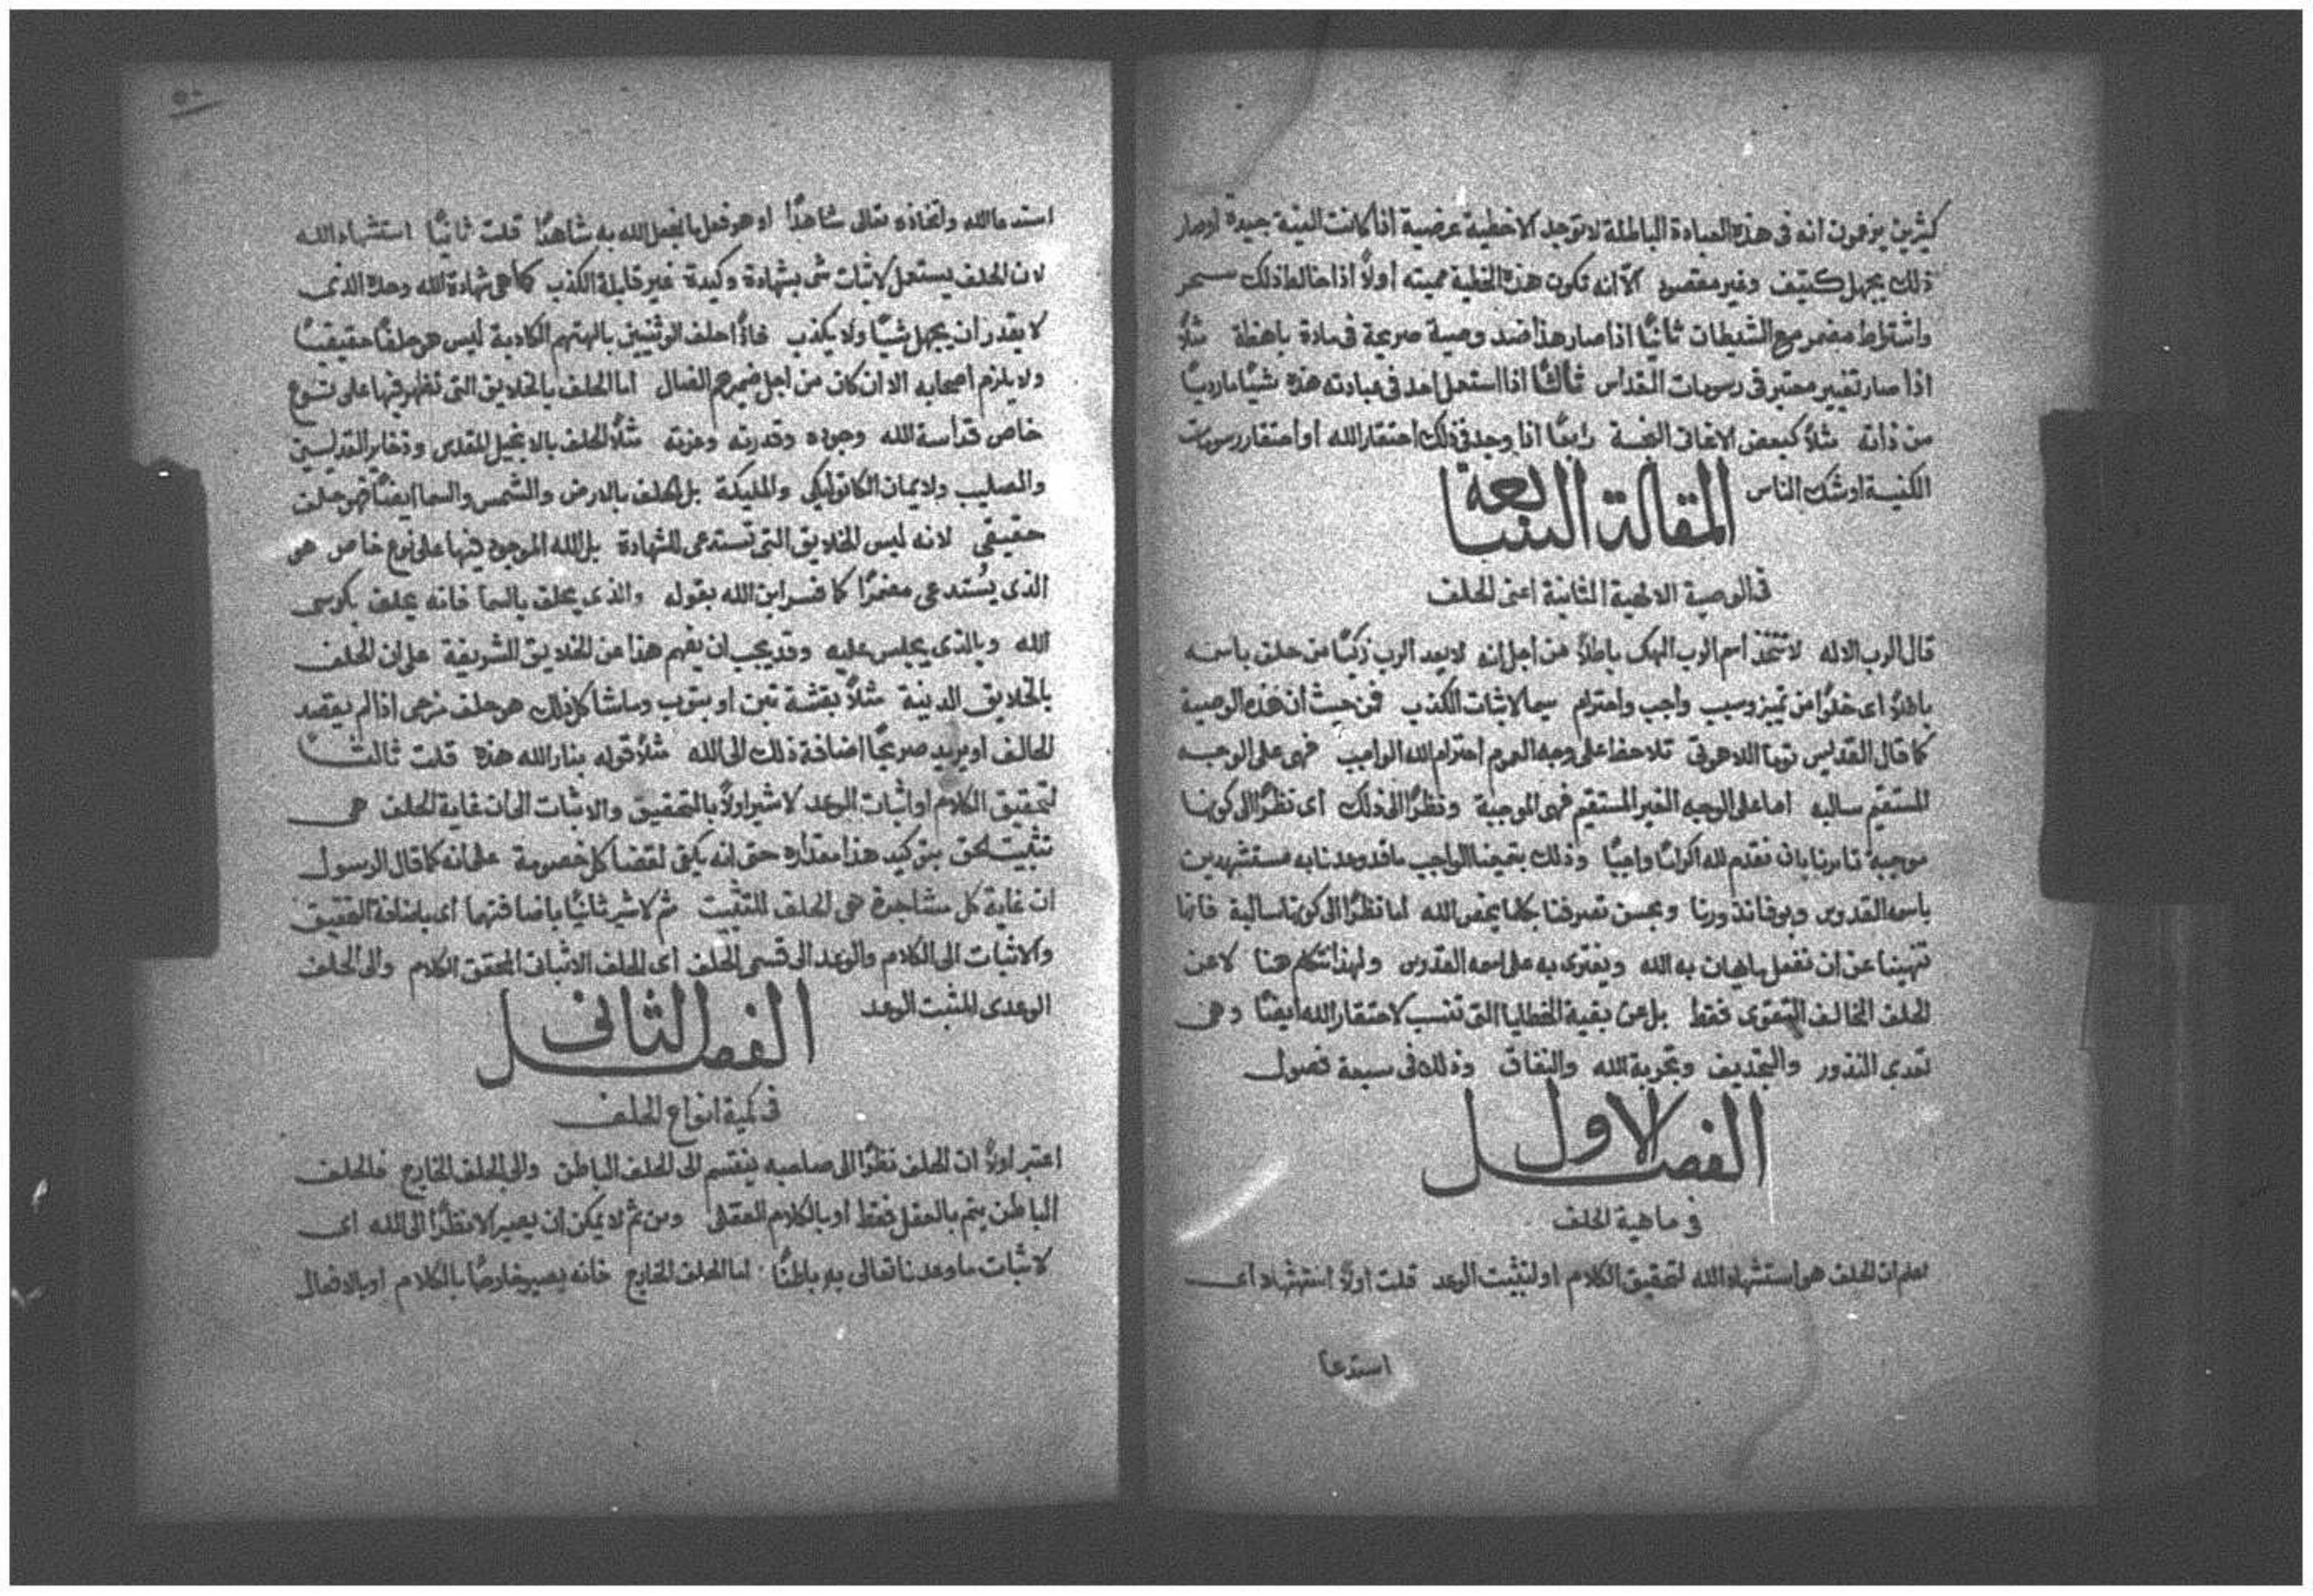 كثيرين يزعمون انه فى هذه العبادة الباطلة لا توجد الا خطية عرضية اذا كانت النية جيدة او صار
ذلك بجهل كثيف وغير مقصود الا انه تكون هذه الخطية مميته أولاً اذا خالط ذلك سحر
واشتراط مضمر مع الشيطان ثانيًا اذا صار هذا ضد وصية صريحة فى مادة باهظة مثلاً
اذا صار تغيير معتبر فى رسومات القداس ثالثًا اذا استعمل احد فى عبادته هذه شيًا ما رديًا
من ذاته مثلاً كبعض الاغانى رابعًا اذا وجد فى ذلك احتقار الله او احتقار رسومات
الكنيسة او شك الناس
المقالة السابعة
فى الوصية الالهية الثانية اعنى الحلف
قال الرب الاله لا تتخذ اسم الرب الهك باطلاً من اجل انه لا يعد الرب زكيًا من حلف باسمه
باطلاً اى خلوًا من تميز وسبب واجب واحترام سيما لاثبات الكذب فمن حيث أن هذه الوصية
كما قال القديس توما اللاهوتى تلاحظ على وجه العموم احترام الله الواجب فهى على الوجه
المستقيم سالبه اما على الوجه الغير المستقيم فهى الموجبة ونظرًا الى ذلك أى نظرًا الى كونها
موجبة تامرنا بان نقدم لله اكرامًا واجبًا وذلك بتميمنا الواجب ما قد وعدنا به مستشهدين
باسمه القدوس وبوفا نذورنا وبحسن تصرفنا بكلما يخص الله اما نظرًا الى كونها سالبة فانها
تنهينا عن ان نفعل ما يهان به الله ويفترى به على اسمه القدوس ولهذا نتكلم هنا لا عن
الحلف المخالف التقوى فقط بل عن بقية الخطايا التى تنسب لاحتقار الله ايضًا وهى
تعدى النذور والتجديف وتجربة الله والنفاق وذلك فى سبعة فصول
الفصل الاول
فى ماهية الحلف
اعلم ان الحلف هو استشهاد الله لتحقيق الكلام او لتثبيت الوعد قلت اولاً استشهاد اى
استدعا
٥٠
استدعا الله واتخاذه تعالى شاهدًا او هو فعل ما يجعل الله به شاهدًا قلت ثانيًا استشهاد الله
لان الحلف يستعمل لاثبات شى بشهادة وكيدة غير قابلة الكذب كما هى شهادة الله وحده الذى
لا يقدر ان يجهل شيًا ولا يكذب فاذًا حلف الوثنيين بالهتهم الكاذبة ليس هو حلفًا حقيقيًا
ولا يلزم اصحابه الا ان كان من اجل ضميرهم الضال اما الحلف بالخلايق التى تظهر فيها على نوع
خاص قداسة الله وجوده وقدرته وعزته مثلاً الحلف بالانجيل المقدس وذخاير القديسين
والصليب والايمان الكاثوليكى والمليكة بل الحلف بالارض والشمس والسما ايضًا فهو حلف
حقيقى لانه ليس الخلايق التى تستدعى للشهادة بل الله الموجود فيها على نوع خاص هو
الذى يُستدعى مضمرًا كما فسر ابن الله بقوله والذى يحلف بالسما فانه يحلف بكرسى
الله وبالذى يجلس عليه وقد يجب ان يفهم هذا عن الخلايق الشريفة على ان الحلف
بالخلايق الدنية مثلاً بقشة تبن او بثوب وما شاكل ذلك هو حلف اذا لم يقصد
الحالف او يريد صريحًا اضافة ذلك الى الله مثلاً قوله بنار الله هذه قلت ثالثًا
لتحقيق الكلام او اثبات الوعد لاشير اولاً بالتحقيق والاثبات الى ان غاية الحلف هى
تثبيت الحق بتوكيد هذا مقداره حتى انه يكفى لقضا كل خصومة على انه كما قال الرسول
ان غاية كل مشاجرة هى الحلف للتثبيت ثم لاشير ثانيًا باضافتهما اى باضافة التحقيق
والاثبات الى الكلام والوعد الى قسمى الحلف أى الحلف الاثباتى المحقق الكلام والى الحلف
الوعدى المثبت الوعد
الفصل الثانى
فى كمية انواع الحلف
اعتبر اولاً ان الحلف نظرًا الى صاحبه ينقسم الى الحلف الباطن والى الحلف الخارج فالحلف
الباطن يتم بالعقل فقط او بالكلام العقلى ومن ثم لا يمكن أن يصير الا نظرًا الى الله اى
لاثبات ما وعدنا تعالى به باطنًا اما الحلف الخارج فانه يصير خارجًا بالكلام او بالافعال